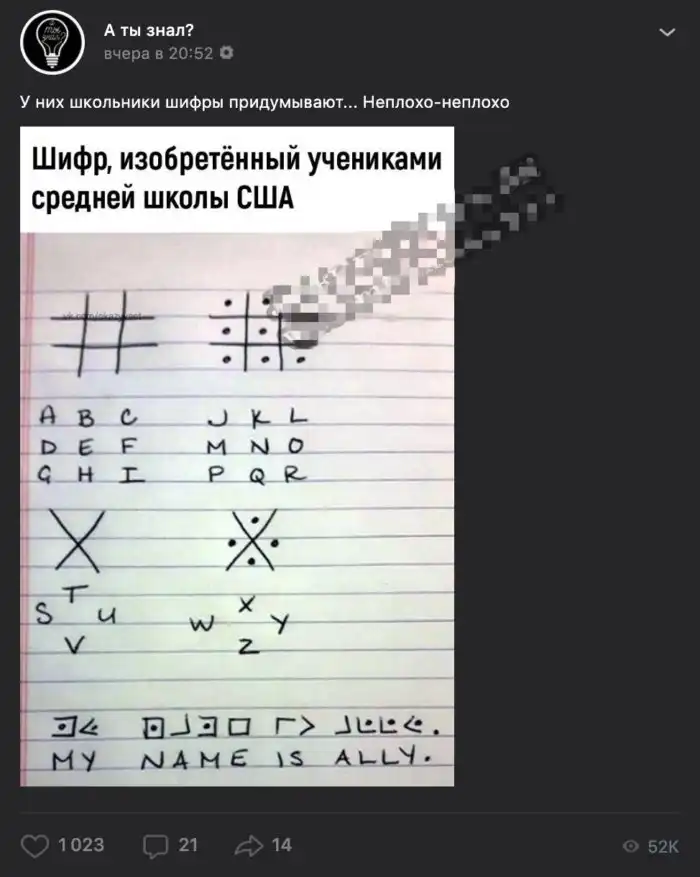 А ты знал?
вчера в 20:52
У них школьники шифры придумывают... Неплохо-неплохо
Шифр, изобретённый учениками
средней школы США
A B C
D E F
G H I
J K L
M N O
P Q R
T
S U
V
X
W Y
Z
MY NAME IS ALLY.
1 023
21
14
52K